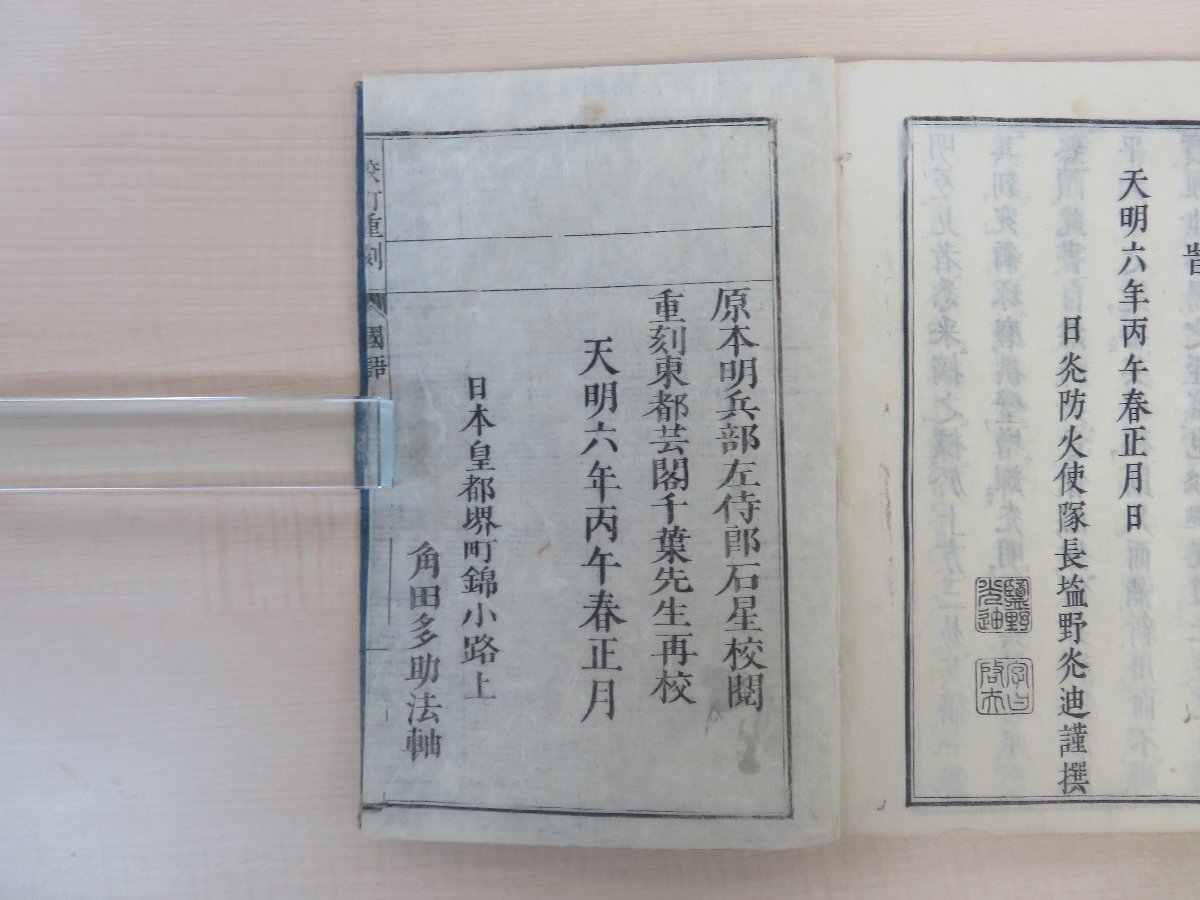 天明六年丙午春正月日
日炎防火使隊長塩野炎迪謹撰
原本明兵部左侍郎石星校閲
重刻東都芸閣千葉先生再校
天明六年丙午春正月
日本皇都堺町錦小路上
角田多助法軸
校訂重刻
國語